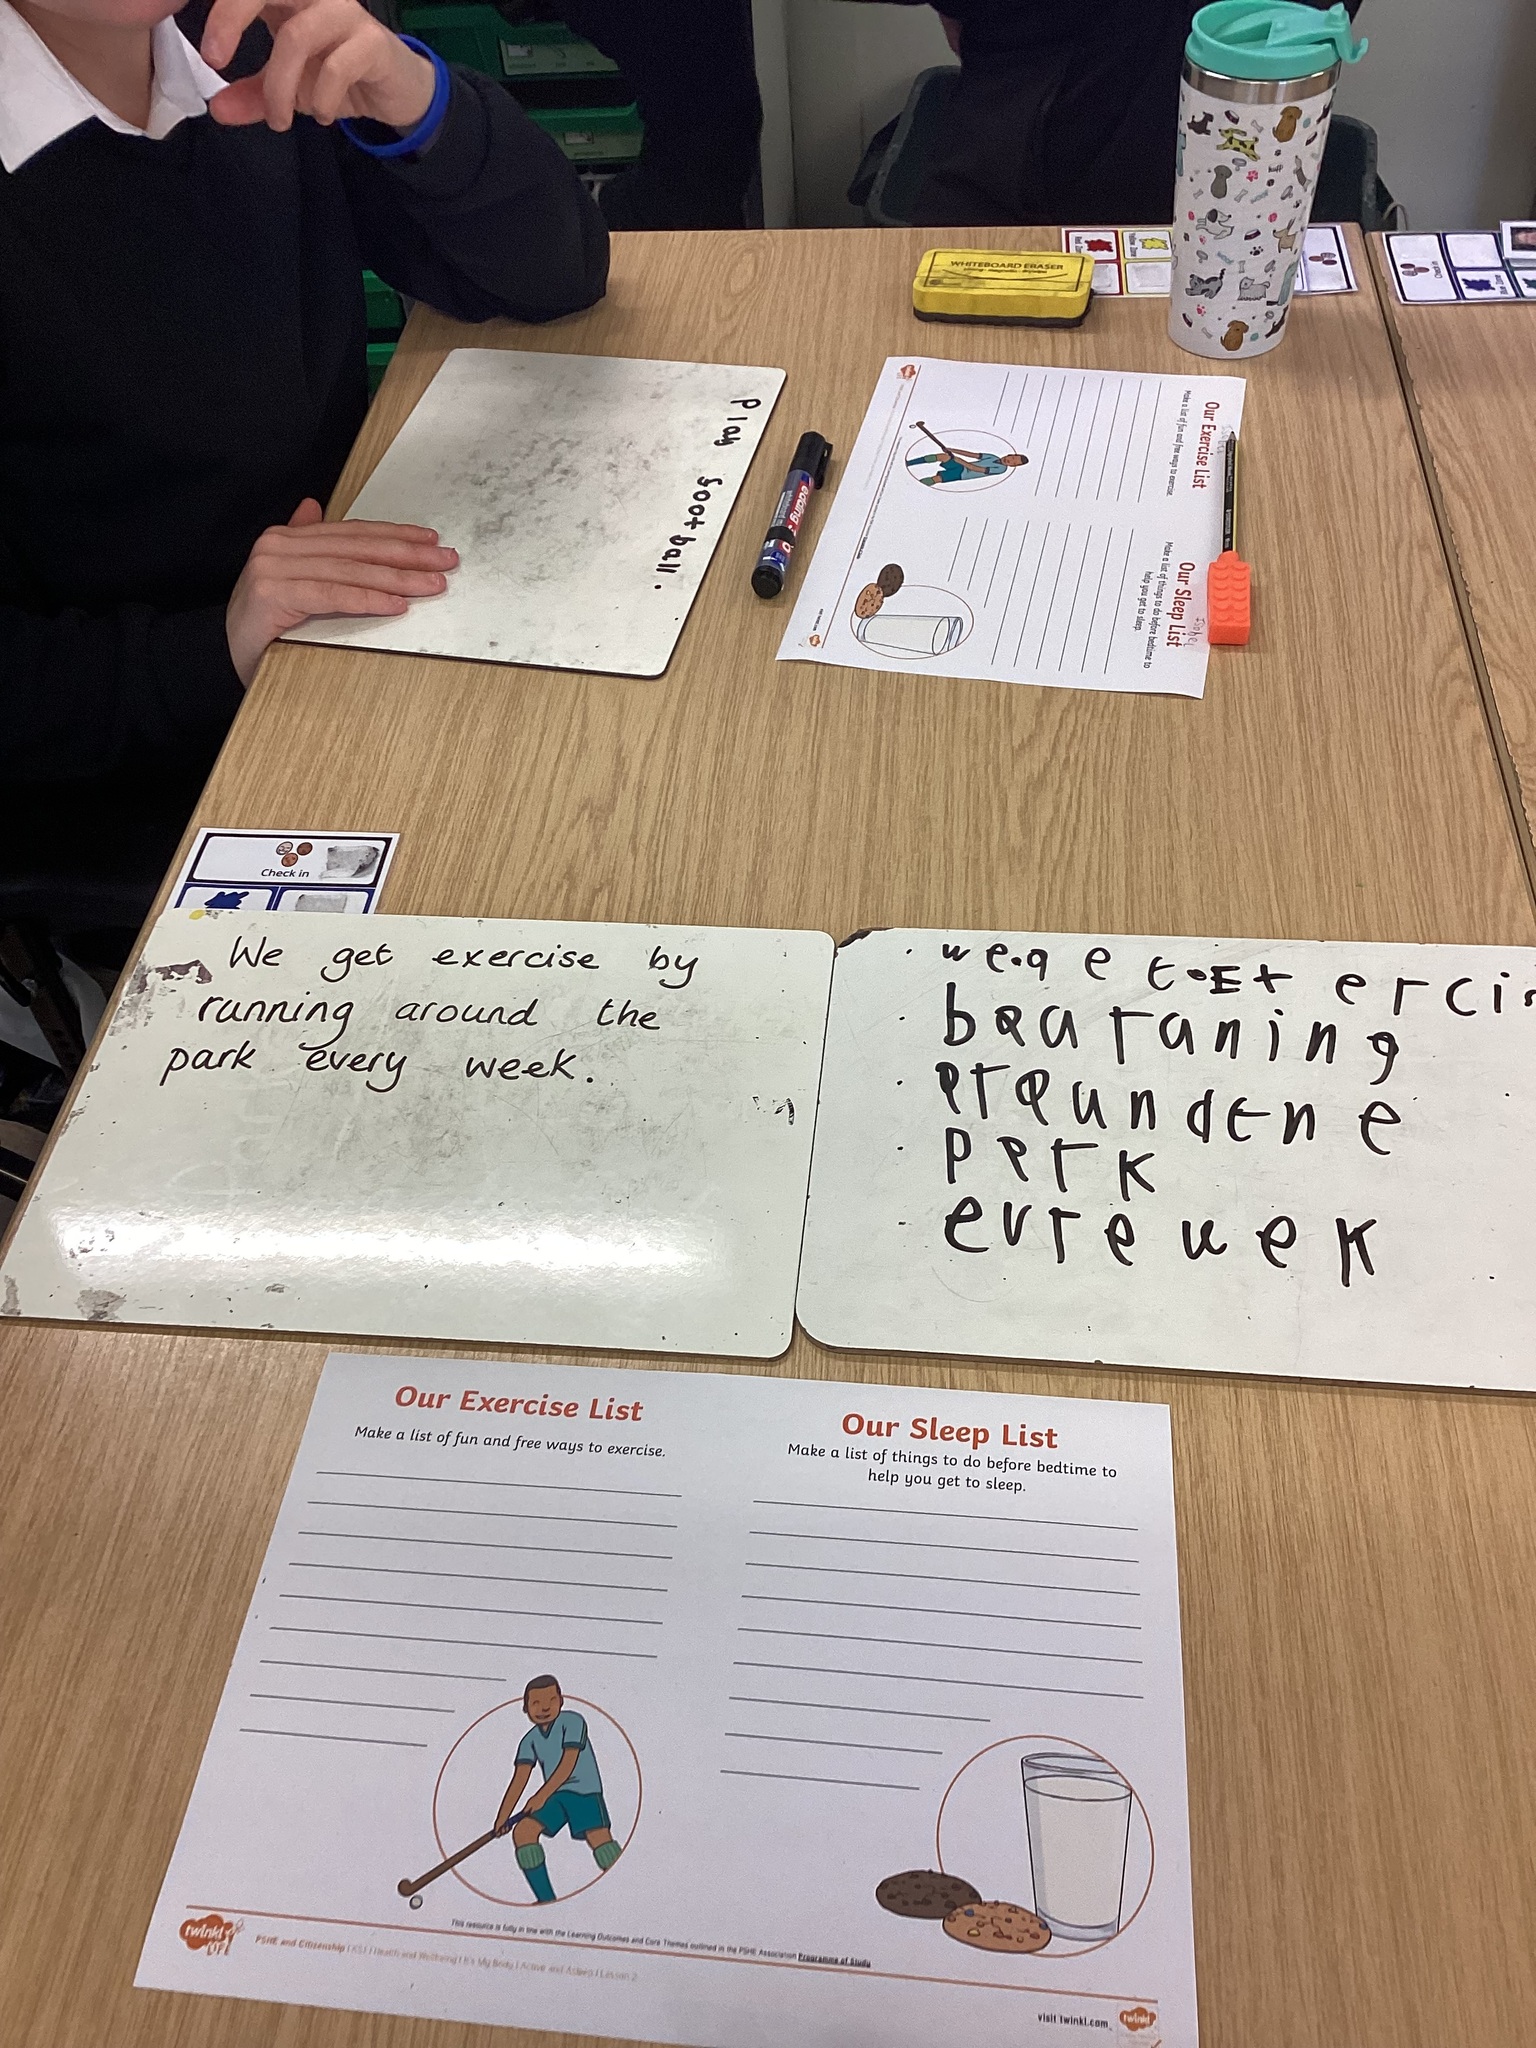 WHITEBOARD ERASER
Play football.
edding
Our Exercise List
Make a list of fun and free ways to exercise.
Our Sleep List
Make a list of things to do before bedtime to
help you get to sleep.
Check in
Check in
We get exercise by
running around the
park every week.
erci
bqu raning
park
evre uek
Our Exercise List
Make a list of fun and free ways to exercise.
Our Sleep List
Make a list of things to do before bedtime to
help you get to sleep.
This resource is fully in line with the Learning Outcomes and Core Themes outlined in the PSHE Association Programme of Study
twinkl
PSHE and Citizenship | KS1 | Health and Wellbeing | It's My Body | Active and Asleep | Lesson 2
visit twinkl.com
twinkl